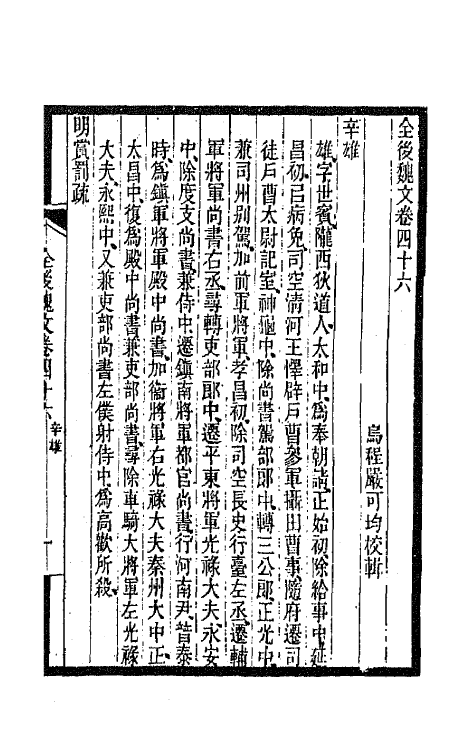 全後魏文卷四十六
烏程嚴可均校輯
辛雄
雄、字世賓、隴西狄道人、太和中、爲奉朝請、正始初、除給事中、延
昌初、㠯病免、司空清河王懌辟戶曹參軍、攝田曹事、隨府遷司
徒戶曹太尉記室、神龜中、除尚書駕部郎中、轉三公郎、正光中、
兼司州別駕、加前軍將軍、孝昌初、除司空長史、行臺左丞、遷輔
軍將軍尚書右丞、尋轉吏部郎中、遷平東將軍光祿大夫、永安
中、除度支尚書、兼侍中、遷鎮南將軍都官尚書、行河南尹、普泰
時、爲鎮軍將軍殿中尚書、加衞將軍右光祿大夫秦州大中正、
太昌中、復爲殿中尚書、兼吏部尚書、尋除車騎大將軍左光祿
大夫、永熙中、又兼吏部尚書左僕射侍中、爲高歡所殺、
明賞罰疏
全後魏文卷四十六
辛雄
一